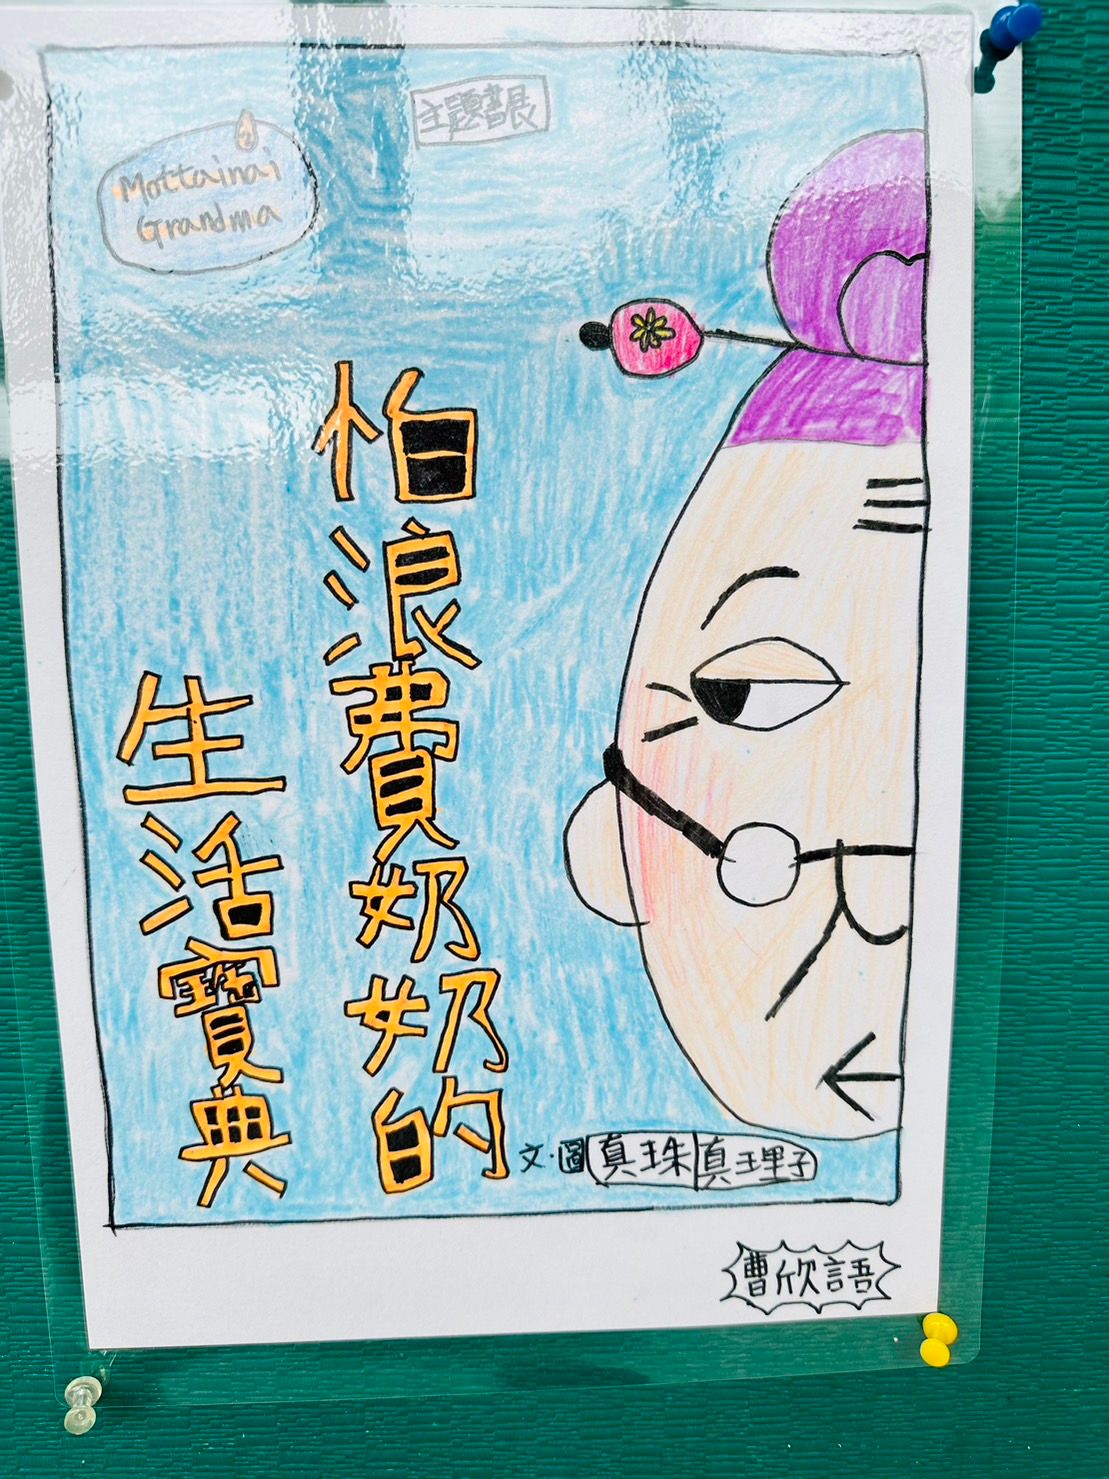 主題書展
Mottainai
Grandma
怕浪費奶奶的
生活寶典
文·圖 真珠 真理子
曹欣語